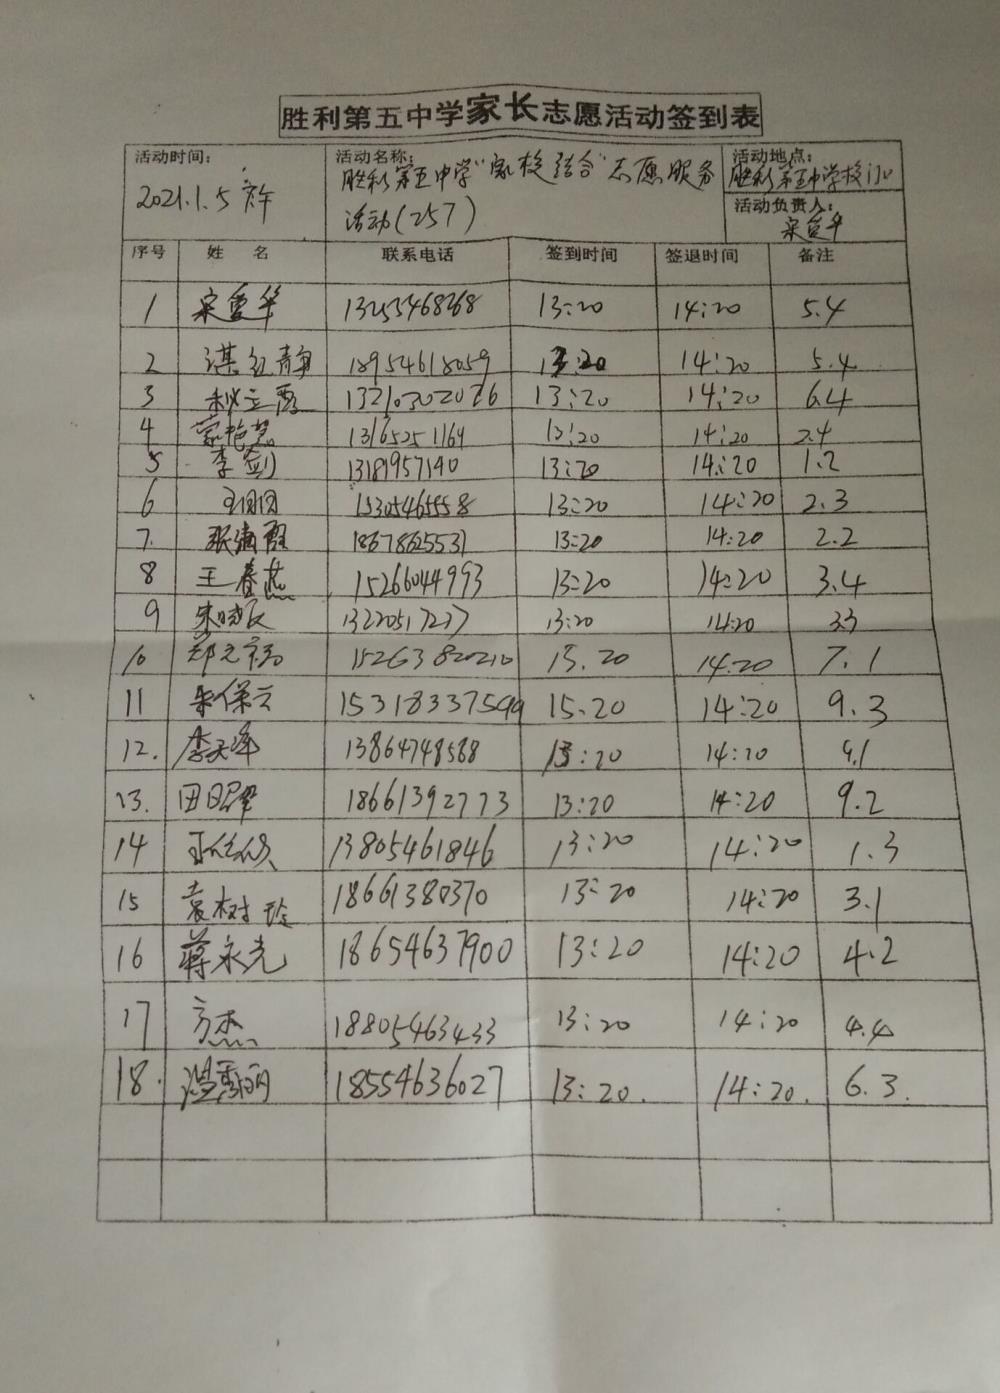 胜利第五中学家长志愿活动签到表
活动时间: 活动名称: 活动地点:
2021.1.5 下午 胜利第五中学"家校结合"志愿服务 胜利第五中学校门口
活动(257) 活动负责人:
序号 姓 名 联系电话 签到时间 签退时间 备注
1 13255468268 13:20 14:20 5.4
2 谋红静 18954618059 13:20 14:20 5.4
3 13210302026 13:20 14:20 6.4
4 13165251164 13:20 14:20 2.4
5 李剑 13181957140 13:20 14:20 1.2
6 15305465558 13:20 14:20 2.3
7. 张海霞 18678625531 13:20 14:20 2.2
8 王春燕 15266044993 13:20 14:20 3.4
9 朱晓辰 13220517217 13:20 14:20 3.3
10 15263820210 15.20 14.20 7.1
11 朱保云 15318337599 15:20 14:20 9.3
12. 13864748588 13:20 14:20 9.1
13. 18661392773 13:20 14:20 9.2
14 13805461846 13:20 14:20 1.3
15 袁树玲 18661380370 13:20 14:20 3.1
16 蒋永光 18654637900 13:20 14:20 4.2
17 方杰 18805463433 13:20 14:20 4.4
18. 温秀丽 18554636027 13:20. 14:20. 6.3.